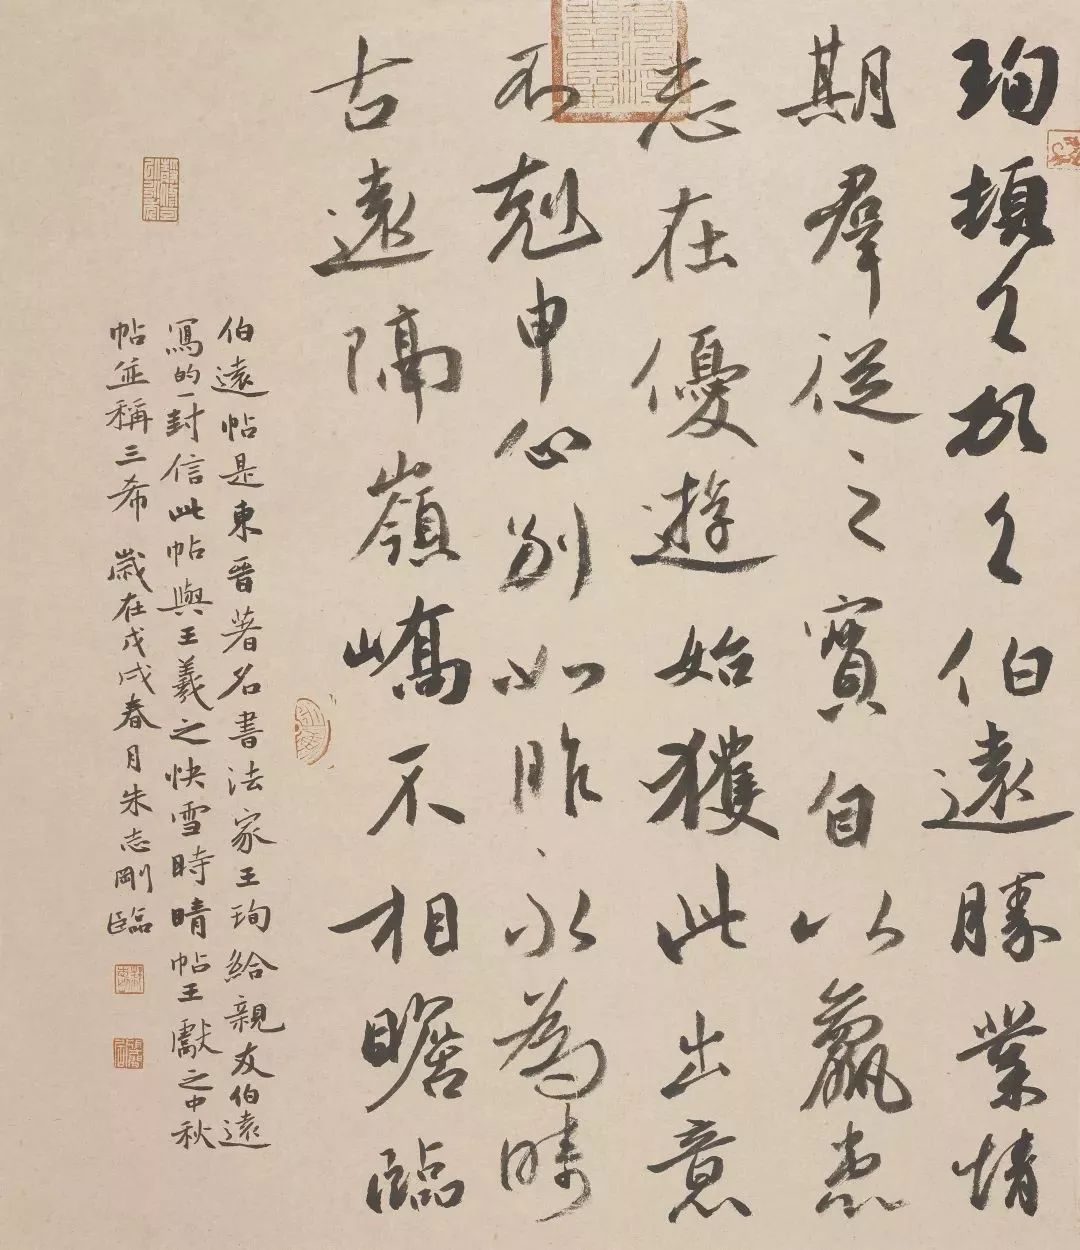 珣頓首頓首伯遠勝業情
期羣從之寶自以羸患
志在優遊始獲此出意
不剋申分別如昨永為疇
古遠隔嶺嶠不相瞻臨
伯遠帖是東晋著名書法家王珣給親友伯遠
寫的一封信此帖與王羲之快雪時晴帖王獻之中秋
帖並稱三希 歲在戊戌春月朱志剛臨